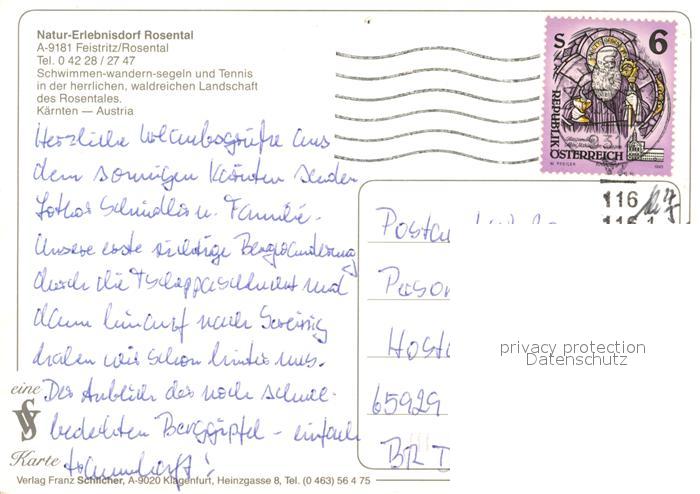 Natur-Erlebnisdorf Rosental
A-9181 Feistritz/Rosental
Tel. 0 42 28 / 27 47
Schwimmen-wandern-segeln und Tennis
in der herrlichen, waldreichen Landschaft
des Rosentales.
Kärnten — Austria
S 6
REPUBLIK
ÖSTERREICH
116
116 1
Herzliche Urlaubsgrüße aus
dem sonnigen Kärnten senden
Lothar Schindler u. Familie.
Unsere erste richtige Bergwanderung
durch die Tscheppaschlucht und
dann hinauf nach
haben wir schon hinter uns.
Der Anblick der noch schnee-
bedeckten Berggipfel - einfach
traumhaft!
Postcu
Person
Hosto
65929
BR T
privacy protection
Datenschutz
eine
Karte
Verlag Franz Schilcher, A-9020 Klagenfurt, Heinzgasse 8, Tel. (0 463) 56 4 75